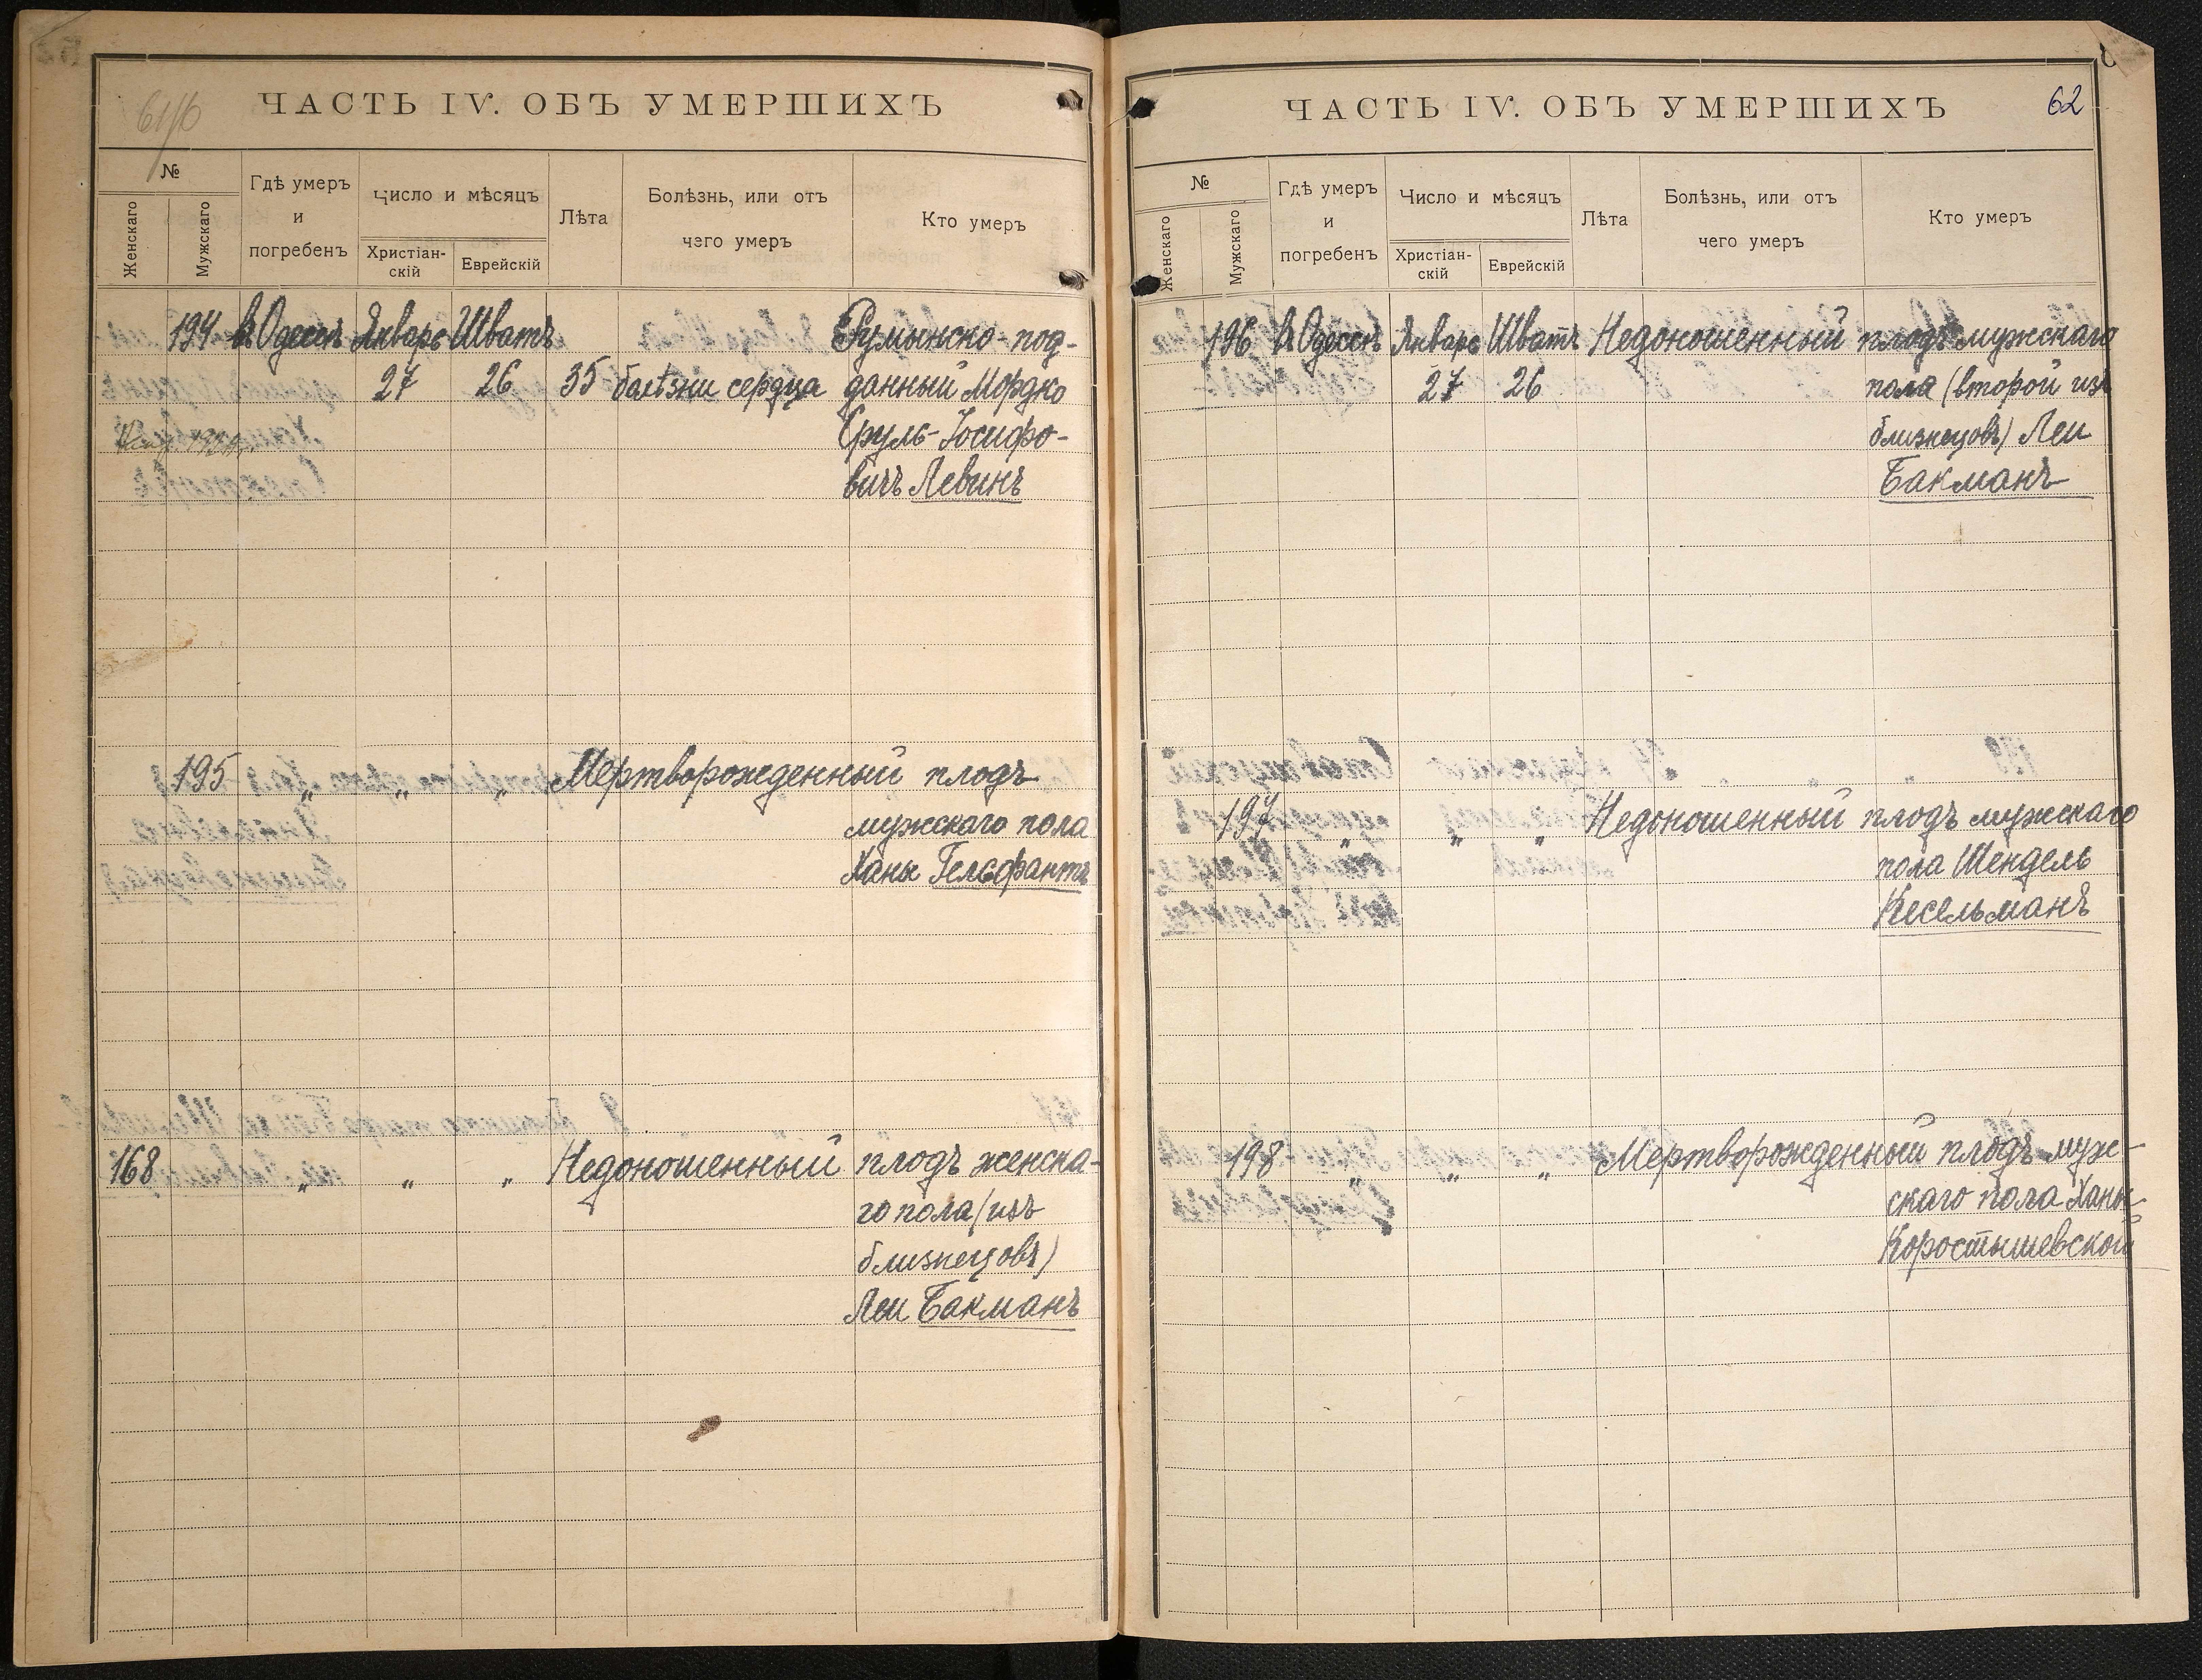 61/б
ЧАСТЬ IV. ОБЪ УМЕРШИХЪ
№
Женскаго
Мужскаго
Гдѣ умеръ
и
погребенъ
Число и мѣсяцъ
Христіан-
скій
Еврейскій
Лѣта
Болѣзнь, или отъ
чего умеръ
Кто умеръ
194 въ Одессѣ Январь Шватъ Румынско-под-
27 26 35 болѣзни сердца данный Мордко
Сруль-Іосифо-
вичъ Левинъ
195 „ „ „ Мертворожденный плодъ
мужскаго пола
Ханы Гельфантъ
168 „ „ „ Недоношенный плодъ женска-
го пола (изъ
близнецовъ)
Леи Бакманъ
ЧАСТЬ IV. ОБЪ УМЕРШИХЪ
62
№
Женскаго
Мужскаго
Гдѣ умеръ
и
погребенъ
Число и мѣсяцъ
Христіан-
скій
Еврейскій
Лѣта
Болѣзнь, или отъ
чего умеръ
Кто умеръ
196 въ Одессѣ Январь Шватъ Недоношенный плодъ мужскаго
27 26 пола (второй изъ
близнецовъ) Леи
Бакманъ
197 „ „ „ Недоношенный плодъ мужскаго
пола Шендель
Кесельманъ
198 „ „ „ Мертворожденный плодъ муж-
скаго пола Ханы
Коростышевской